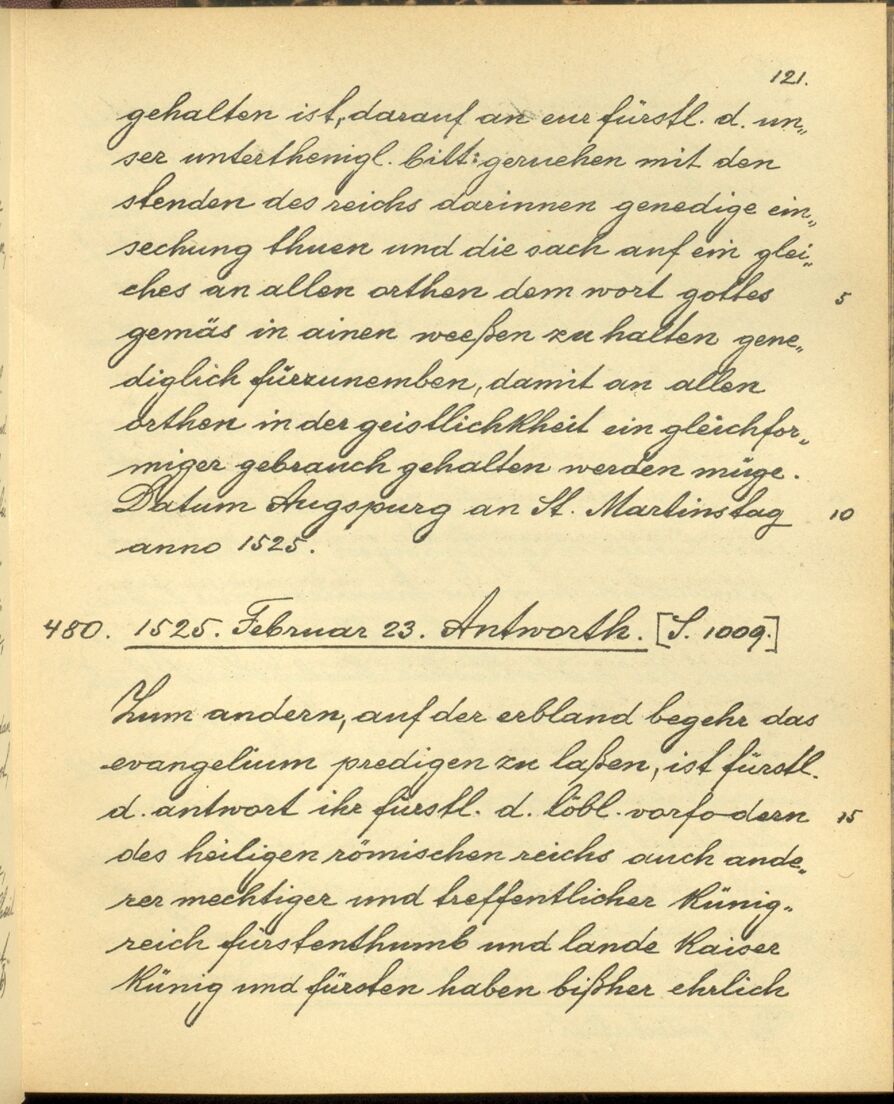 121.
gehalten ist, darauf an eur fürstl. d. un„
ser unterthenigl. bitt: geruehen mit den
stenden des reichs darinnen genedige ein„
sechung thuen und die sach auf ein glei„
ches an allen orthen dem wort gottes 5
gemäs in ainen weeßen zu halten gene„
diglich fürzunemben, damit an allen
orthen in der geistlichkheit ein gleichfor„
miger gebrauch gehalten werden müge.
Datum Augspurg an St. Martinstag 10
anno 1525.
480. 1525. Februar 23. Antworth. [S. 1009.]
Zum andern, auf der erbland begehr das
evangelium predigen zu laßen, ist fürstl.
d. antwort ihr fürstl. d. löbl. vorfodern 15
des heiligen römischen reichs auch ande„
rer mechtiger und treffentlicher Künig„
reich fürstenthumb und lande Kaiser
Künig und fürsten haben bißher ehrlich